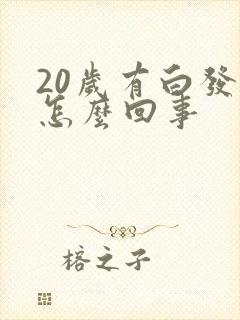 20歲有白發
怎麼回事
榕之子